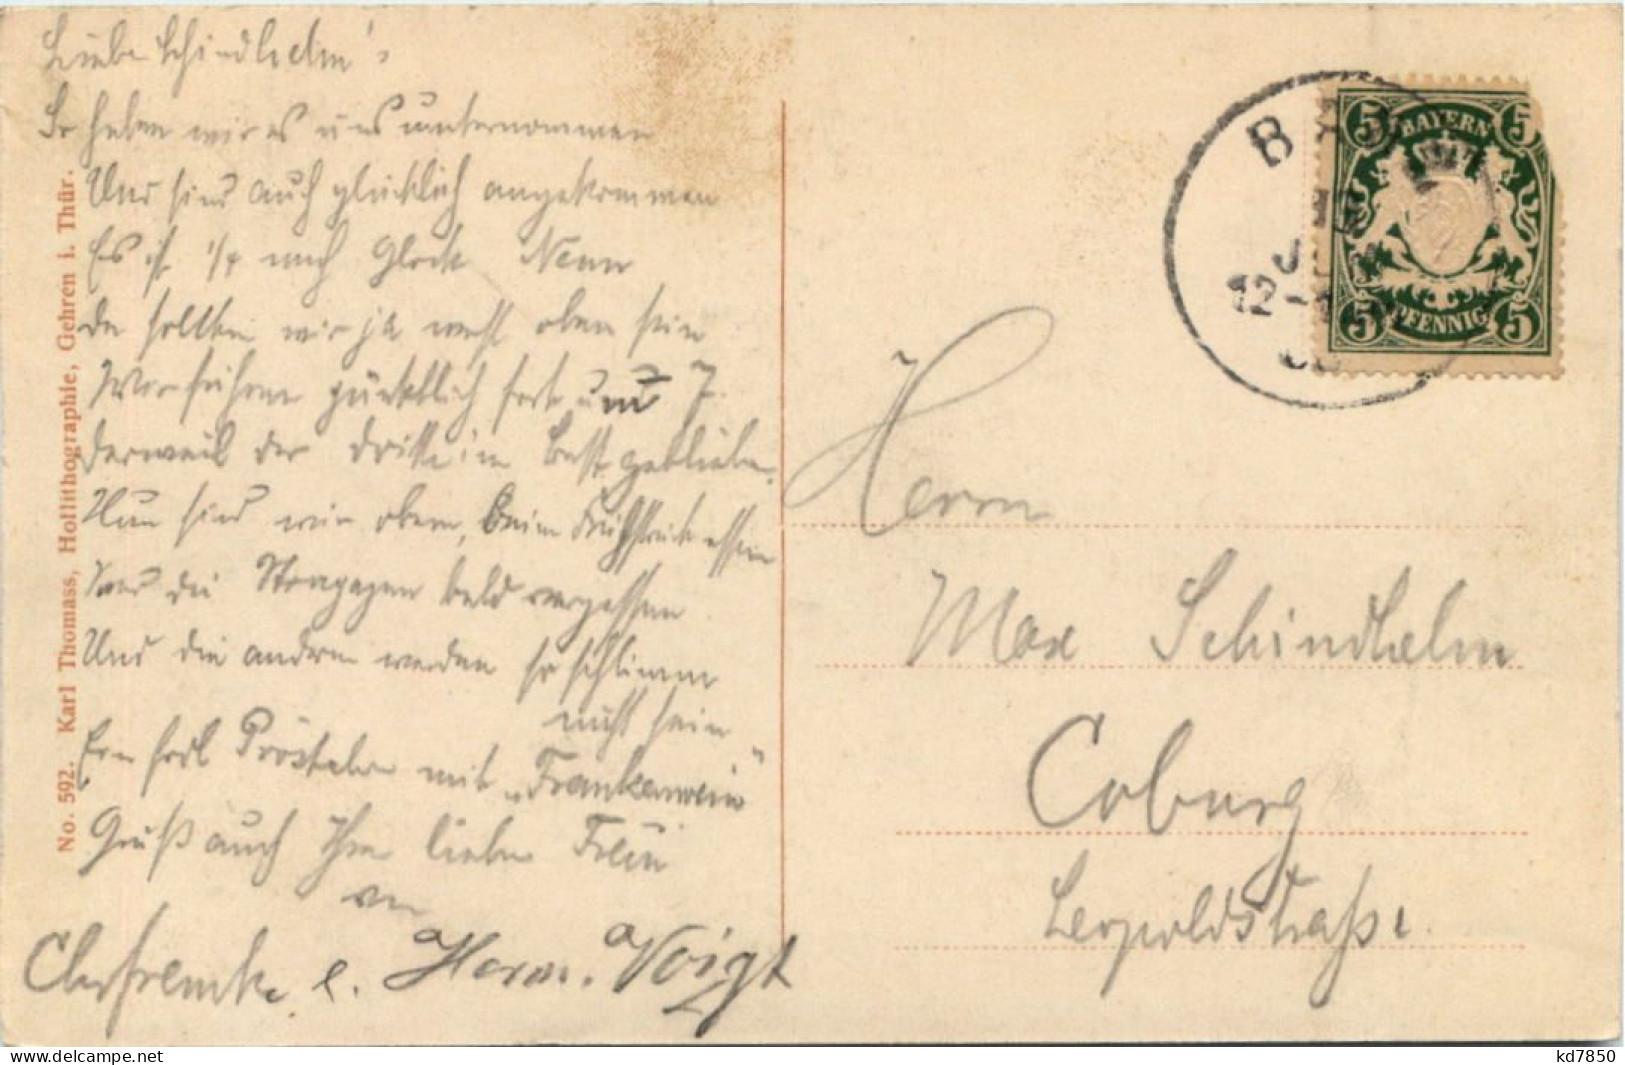 Liebe Schindhelm's
So haben wir es uns unternommen
Und sind auch glücklich angekommen
Es ist 1/4 nach Glock Neun
da sollten wir ja wohl oben sein
Wir fuhren pünktlich fort um 7
derweil der dritte im Bett geblieben.
Nun sind wir oben, beim Frühstück essen
sind die Strapazen bald vergessen
Und die andern werden so schlimm
nicht sein
Ein Pröstchen mit „Frankenwein"
Gruß auch Ihrer lieben Frau
von
u. Herm. Voigt
No. 592. Karl Thomass, Hoflithographie, Gehren i. Thür.
BAYERN
5 5
5 PFENNIG 5
BA
12-1
Herrn
Max Schindhelm
Coburg
Leopoldstraße.
kd7850
https://www.delcampe.net